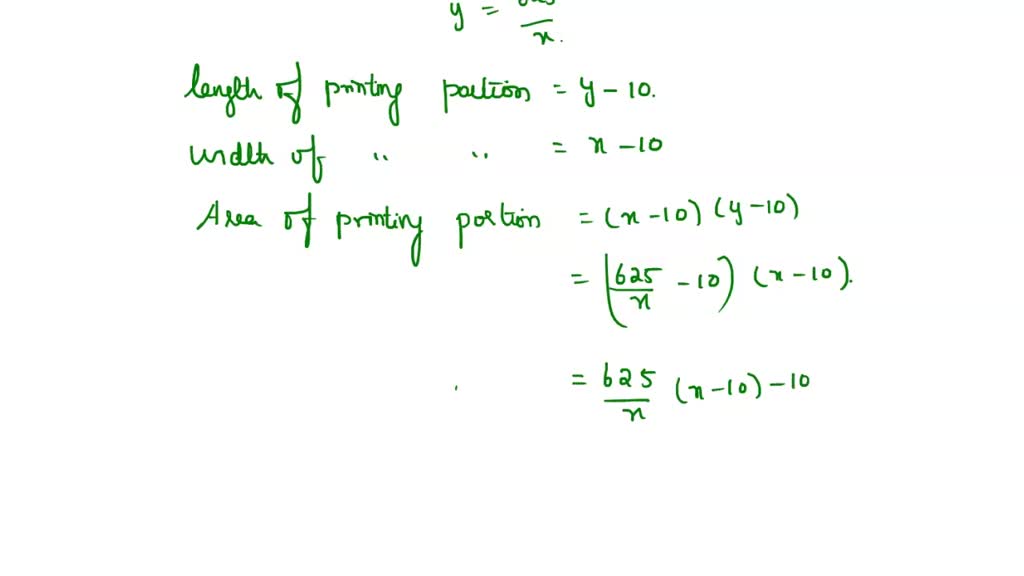 y = /x.
length of printing portion = y - 10.
width of " " = x - 10
Area of printing portion = (x - 10) (y - 10)
= (625/x - 10) (x - 10).
= 625/x (x - 10) - 10